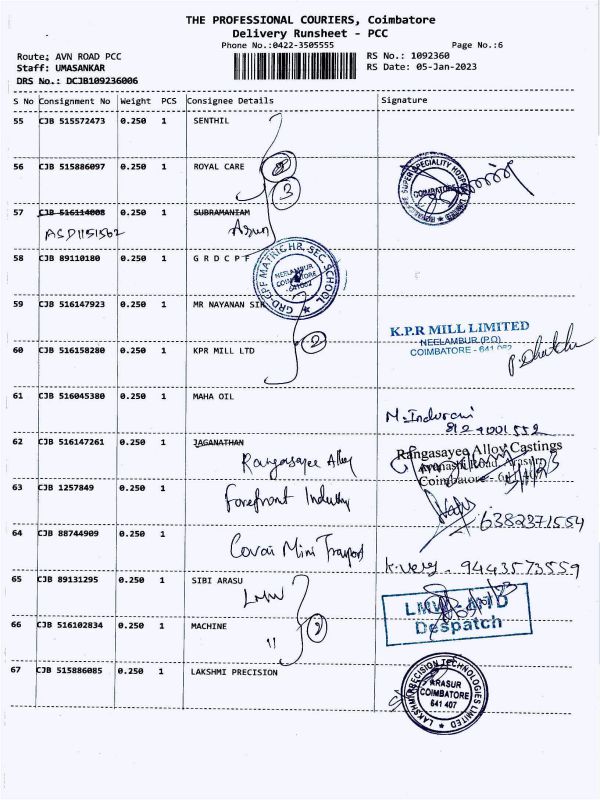 THE PROFESSIONAL COURIERS, Coimbatore
Delivery Runsheet - PCC
Phone No.:0422-3505555 Page No.:6
Route: AVN ROAD PCC RS No.: 1092360
Staff: UMASANKAR RS Date: 05-Jan-2023
DRS No.: DCJB109236006
S No Consignment No Weight PCS Consignee Details Signature
55 CJB 515572473 0.250 1 SENTHIL
56 CJB 515886097 0.250 1 ROYAL CARE
SUPER SPECIALITY HOSPITAL LIMITED COIMBATORE
3
57 CJB 516114008 0.250 1 SUBRAMANIAM
ASD1151562 Arun
58 CJB 89110180 0.250 1 G R D C P F
GRD-CPF MATRIC HR. SEC. SCHOOL NEELAMBUR COIMBATORE -641062
59 CJB 516147923 0.250 1 MR NAYANAN SIK
K.P.R MILL LIMITED
NEELAMBUR (P.O)
COIMBATORE - 641 062
2
60 CJB 516158280 0.250 1 KPR MILL LTD
61 CJB 516045380 0.250 1 MAHA OIL
M. Indurani
62 CJB 516147261 0.250 1 JAGANATHAN
Rangasayee Alloy
Rangasayee Alloy Castings
Avanashi Road, Arasur
Coimbatore - 641 407
63 CJB 1257849 0.250 1
Forefront Industry
6382371554
64 CJB 88744909 0.250 1
Covai Mini Transport
9443573559
65 CJB 89131295 0.250 1 SIBI ARASU
LMW
LMW - ATD
Despatch
66 CJB 516102834 0.250 1 MACHINE
"
2
67 CJB 515886085 0.250 1 LAKSHMI PRECISION
LAKSHMI PRECISION TECHNOLOGIES LIMITED ARASUR COIMBATORE 641 407